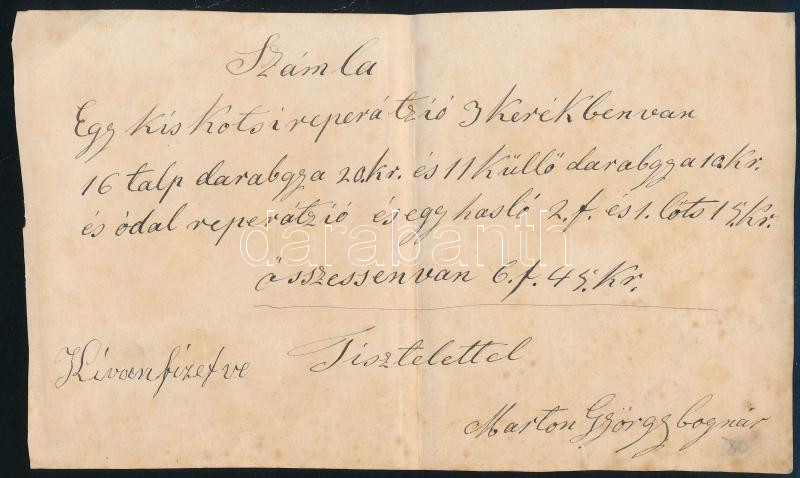 Számla
Egy kis Kotsi reperátzió 3 kerékben van
16 talp darabgya 20.kr. és 11 Küllő darabgya 10.Kr.
és ódal reperátzió és egy hasló 2.f. és 1. lőts 15.Kr.
darabanth
összessen van 6.f. 45.Kr.
Ki van fizetve Tisztelettel
Marton György bognár
80